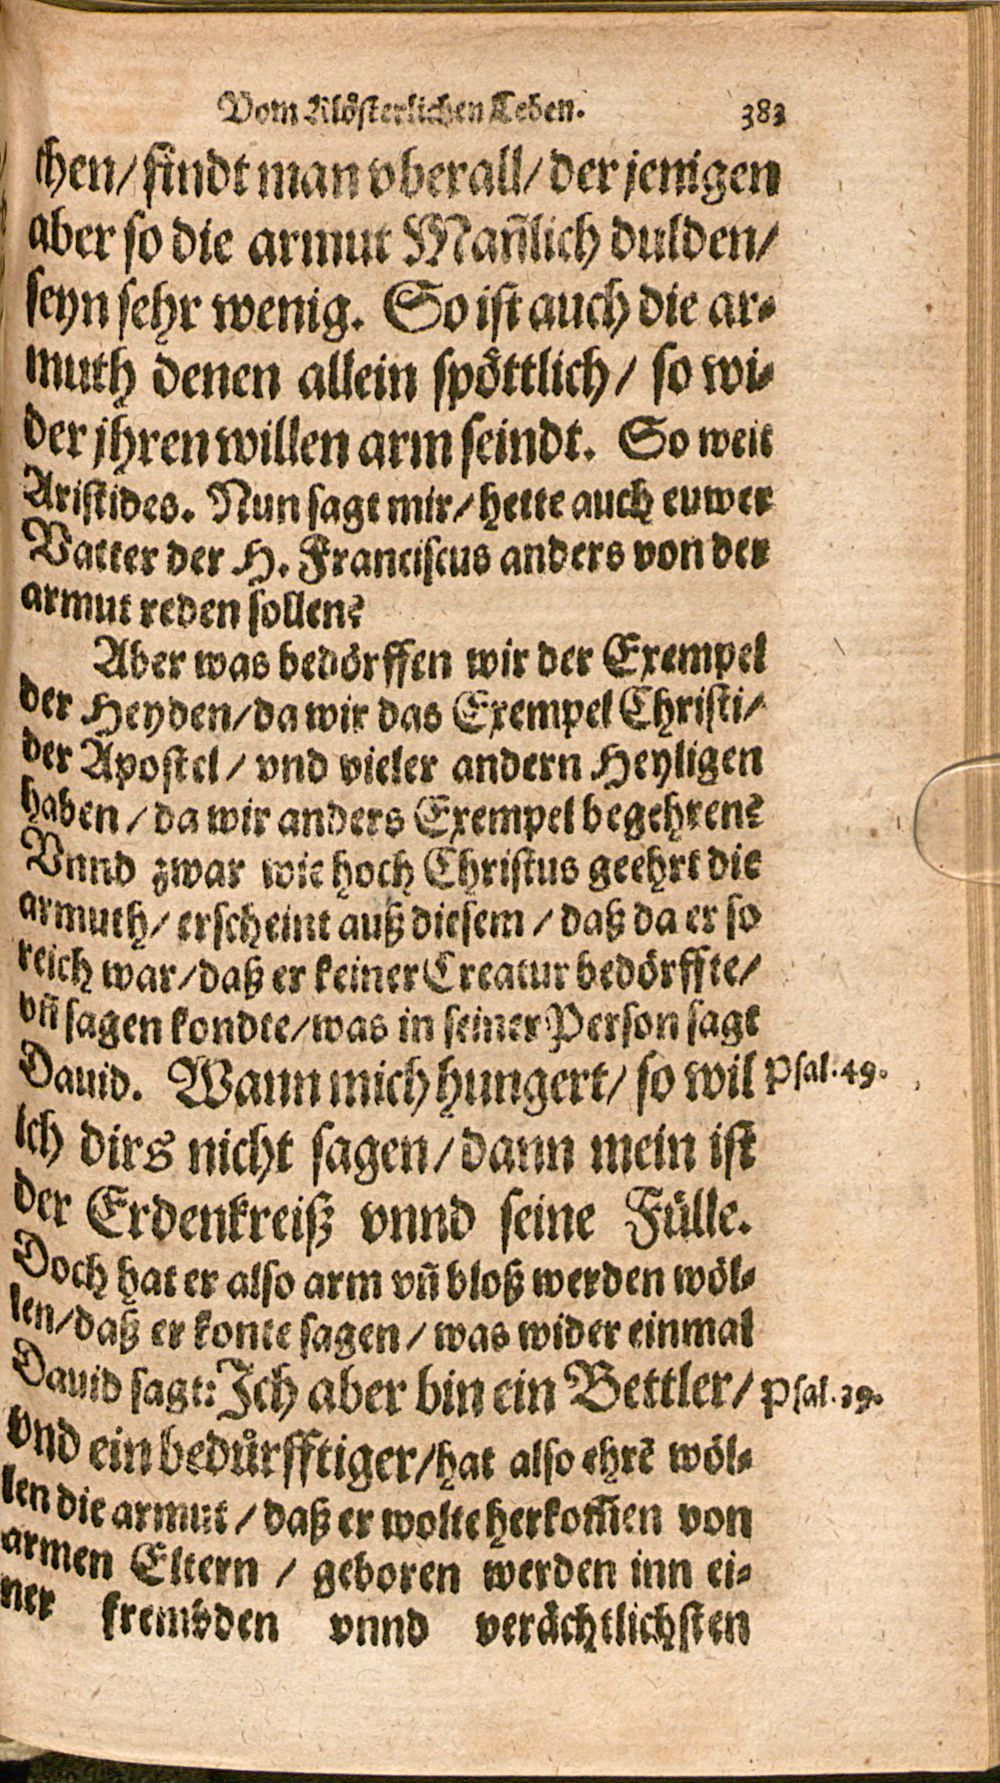 Vom Klösterlichen Leben. 383
chen/ findt man vberall/ der jenigen
aber so die armut Mañlich dulden/
seyn sehr wenig. So ist auch die ar-
muth denen allein spöttlich/ so wi-
der jhren willen arm seindt. So weit
Aristides. Nun sagt mir/ hette auch euwer
Vatter der H. Franciscus anders von der
armut reden sollen?
Aber was bedörffen wir der Exempel
der Heyden/ da wir das Exempel Christi/
der Apostel/ vnd vieler andern Heyligen
haben/ da wir anders Exempel begehren?
Vnnd zwar wie hoch Christus geehrt die
armuth/ erscheint auß diesem/ daß da er so
reich war/ daß er keiner Creatur bedörffte/
vñ sagen kondte/ was in seiner Person sagt
Dauid. Wann mich hungert/ so wil Psal. 49.
ich dirs nicht sagen/ dann mein ist
der Erdenkreiß vnnd seine Fülle.
Doch hat er also arm vñ bloß werden wöl-
len/ daß er konte sagen/ was wider einmal
Dauid sagt: Jch aber bin ein Bettler/ Psal. 39.
vnd ein bedůrfftiger/ hat also ehrẽ wöl-
len die armut/ daß er wolte herkom̃en von
armen Eltern/ geboren werden inn ei-
ner frembden vnnd verächtlichsten